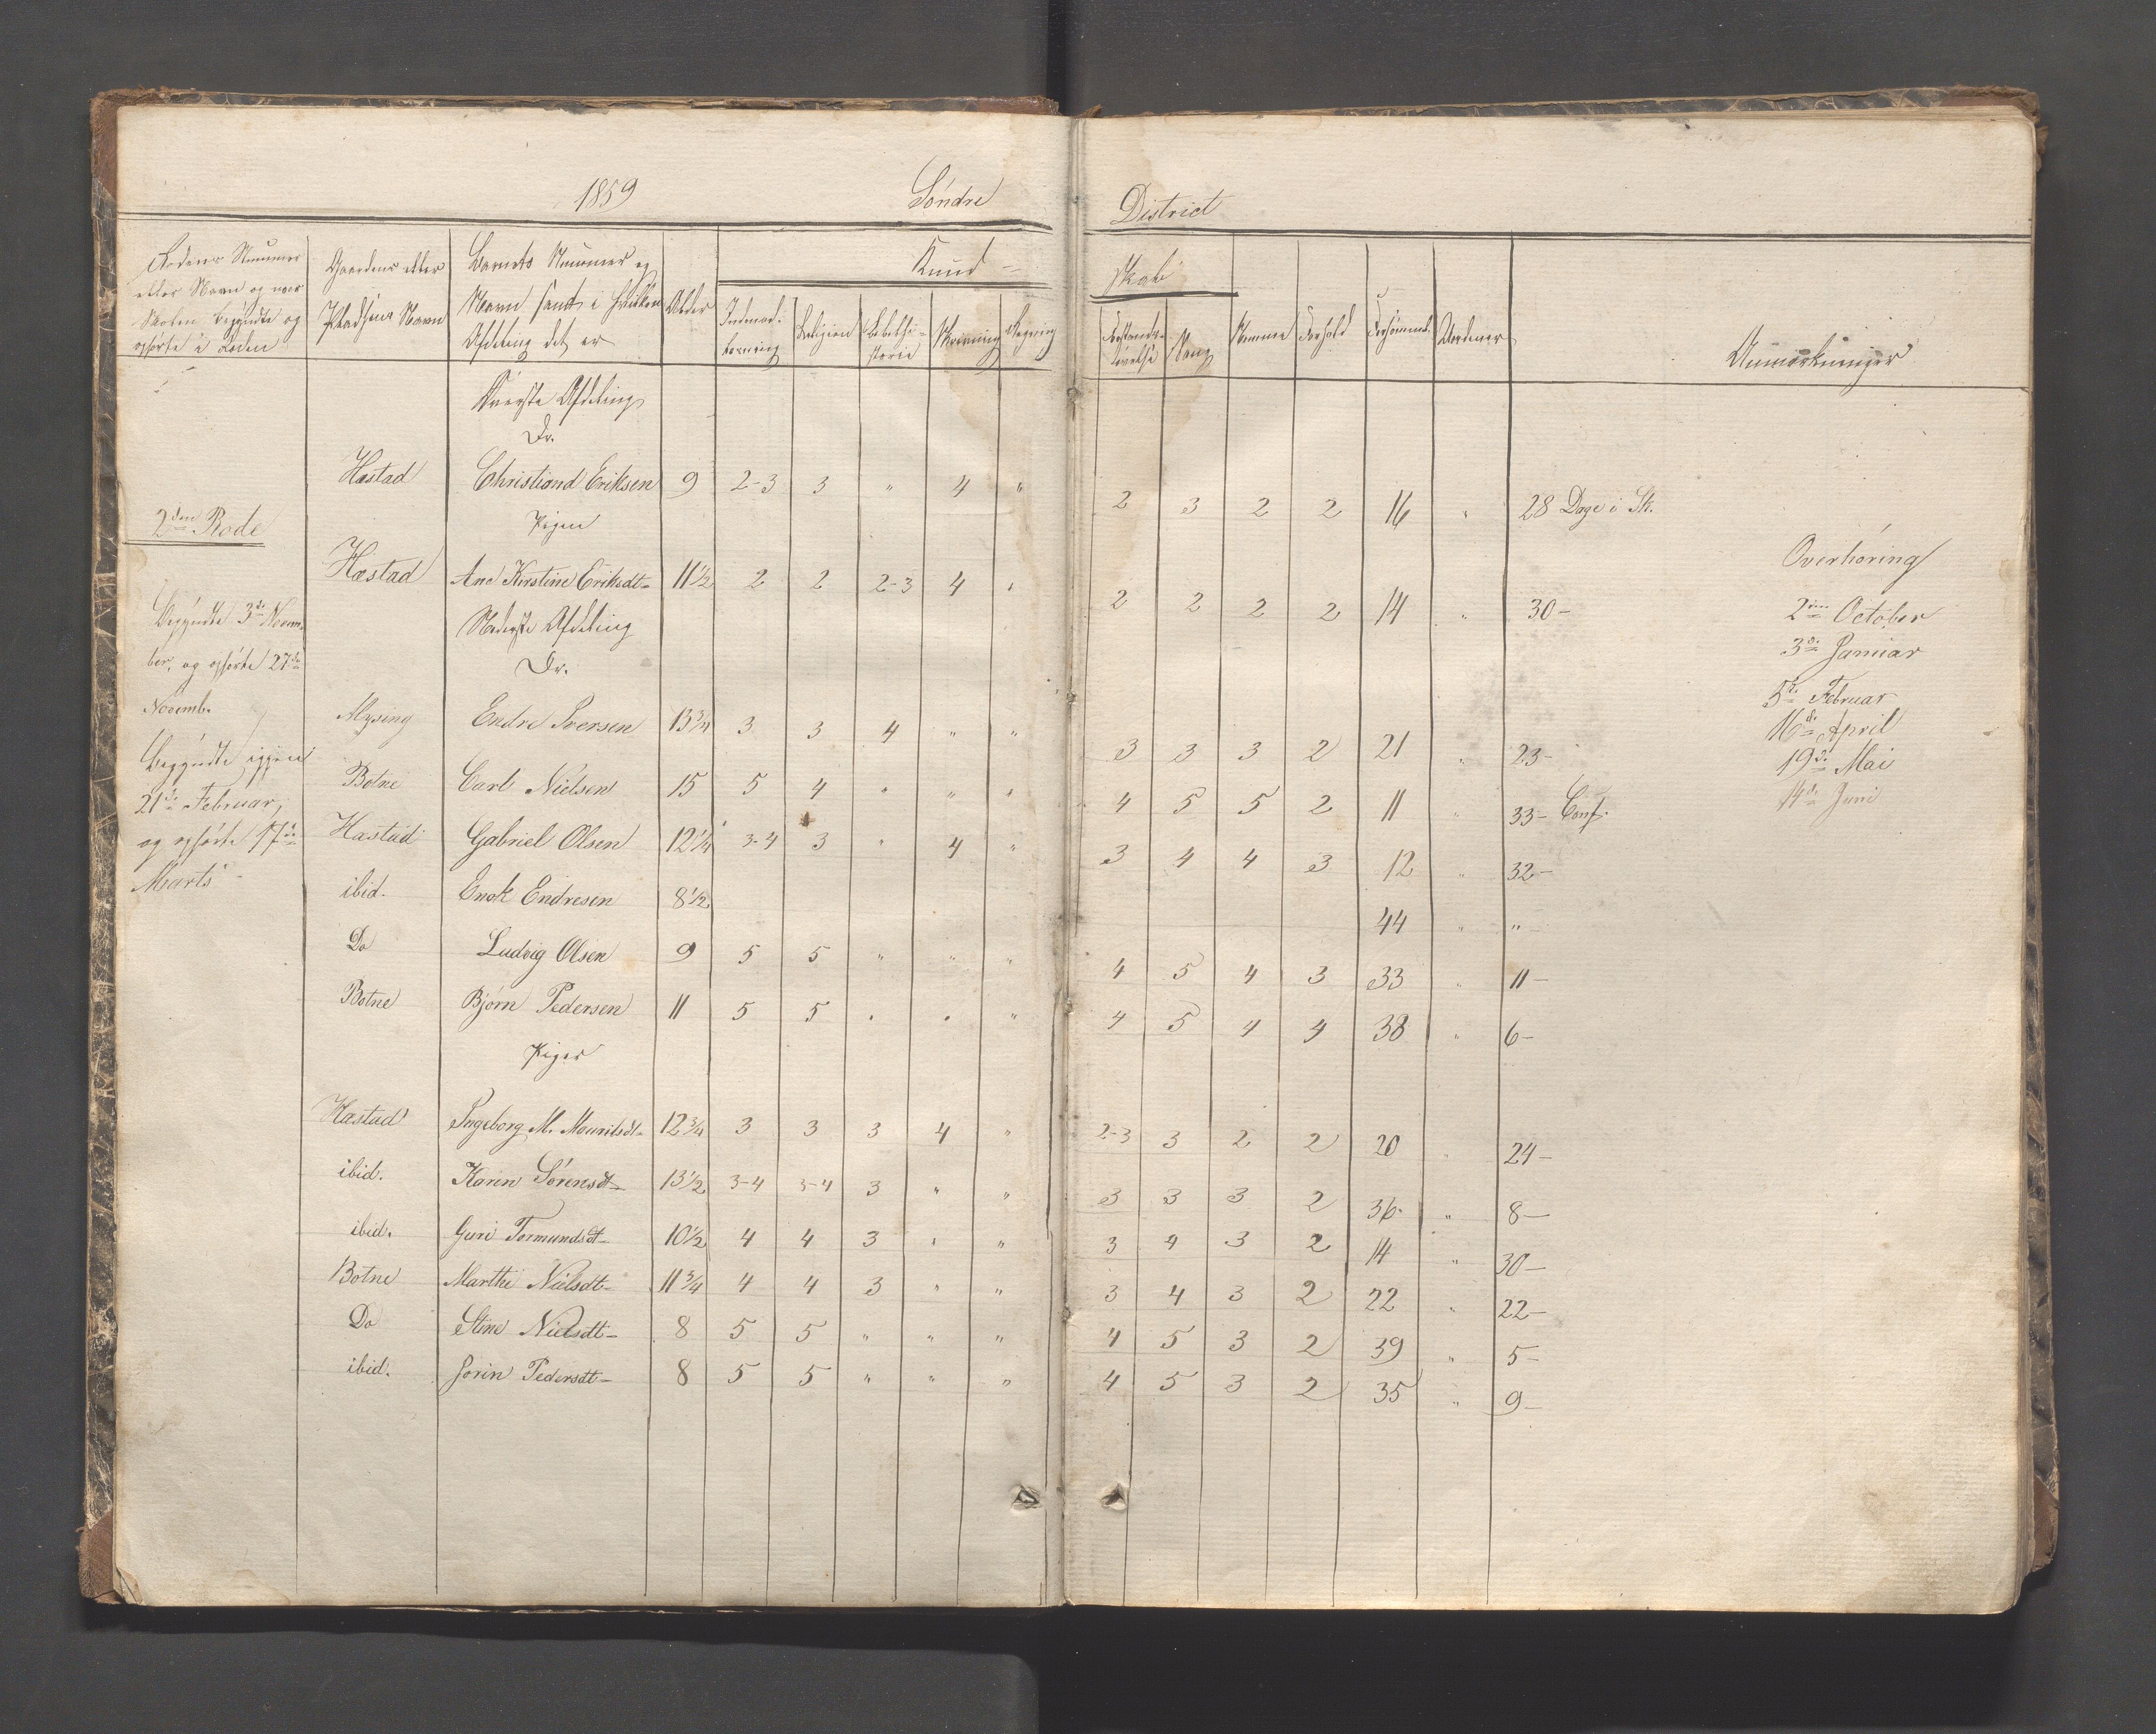 1859 Söndre District
Rodens Nummer eller Navn og naar Skolen begyndte og ophørte i Roden
Gaardens eller Pladsens Navn
Barnets Nummer og Navn samt i hvilken Afdeling det er
Alder
Kund- skab
Indenadlæsning Religion Bibelhistorie Skrivning Regning
Forstandsøvelse Sang Nemme Forhold Forsømmel. Anmærkninger
Øverste Afdeling
Dr.
Hæstad Christiand Eriksen 9 2-3 3 " 4 " 2 3 2 2 16 " 28 Dage i Sk.
2den Rode
Pigen
Hæstad Ane Kirstine Eriksdt- 11 1/2 2 2 2-3 4 " 2 2 2 2 14 " 30-
Begyndte 3die Novem-
ber, og ophørte 27de
Novemb.
Begyndte igjen
21de Februar,
og ophørte 17de
Marts
Nederste Afdeling
Dr.
Mysing Endre Iversen 13 3/4 3 3 4 " " 3 3 3 2 21 " 23-
Botne Carl Nielsen 15 5 4 " " " 4 5 5 2 11 " 33- Conf.
Hæstad Gabriel Olsen 12 1/4 3-4 3 " 4 " 3 4 4 3 12 " 32-
ibid. Enok Endresen 8 1/2 44 " "
Do Ludvig Olsen 9 5 5 " " " 4 5 4 3 33 " 11-
Botne Bjørn Pedersen 11 5 5 " " " 4 5 4 4 38 " 6-
Piger
Hæstad Ingeborg M. Mouritsdt- 12 3/4 3 3 3 4 " 2-3 3 2 2 20 " 24-
ibid. Karin Sörensdt- 13 1/2 3-4 3-4 3 " " 3 3 3 2 36 " 8-
ibid. Guri Tormundsdt- 10 1/2 4 4 3 " " 3 4 3 2 14 " 30-
Botne Marthe Nielsdt- 11 3/4 4 4 3 " " 3 4 3 2 22 " 22-
Do Stine Nielsdt- 8 5 5 " " " 4 5 3 2 39 " 5-
ibid. Sorin Pedersdt- 8 5 5 " " " 4 5 3 2 35 " 9-
Overhöring
2den October
3die Januar
5te Februar
16de April
19de Mai
14de Juni